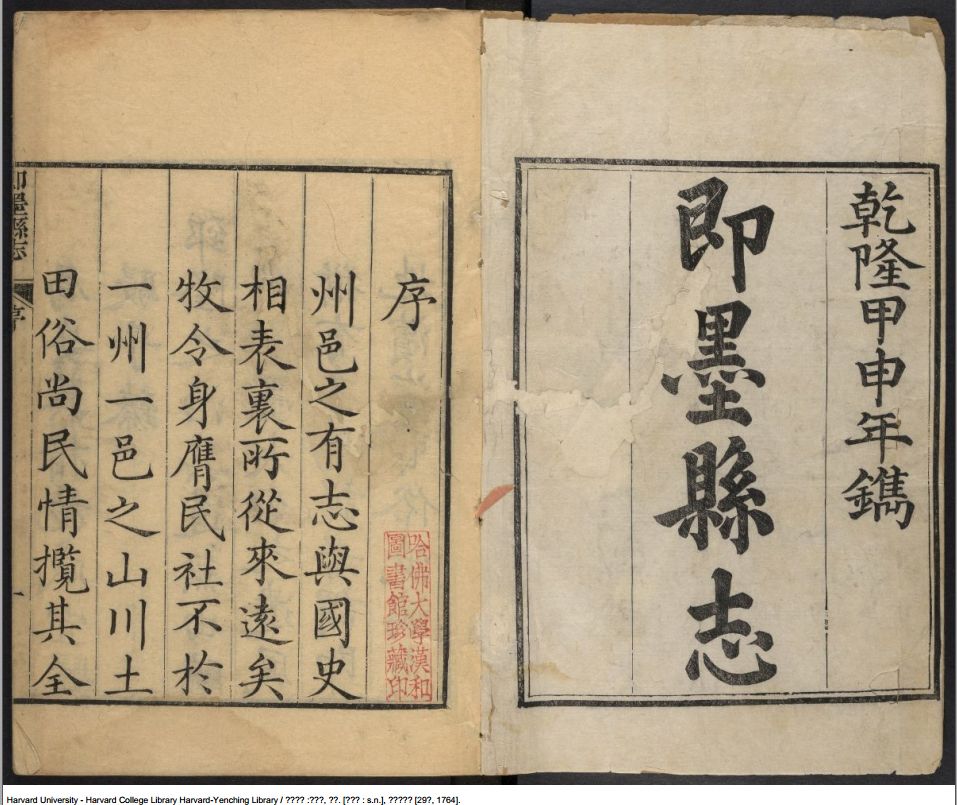 乾隆甲申年鐫
即墨縣志
序
州邑之有志與國史
相表裏所從來遠矣
牧令身膺民社不於
一州一邑之山川土
田俗尚民情攬其全
哈佛大學漢和
圖書館珍藏印
即墨縣志
序
一
Harvard University - Harvard College Library Harvard-Yenching Library / ???? :???, ??. [??? : s.n.], ????? [29?, 1764].